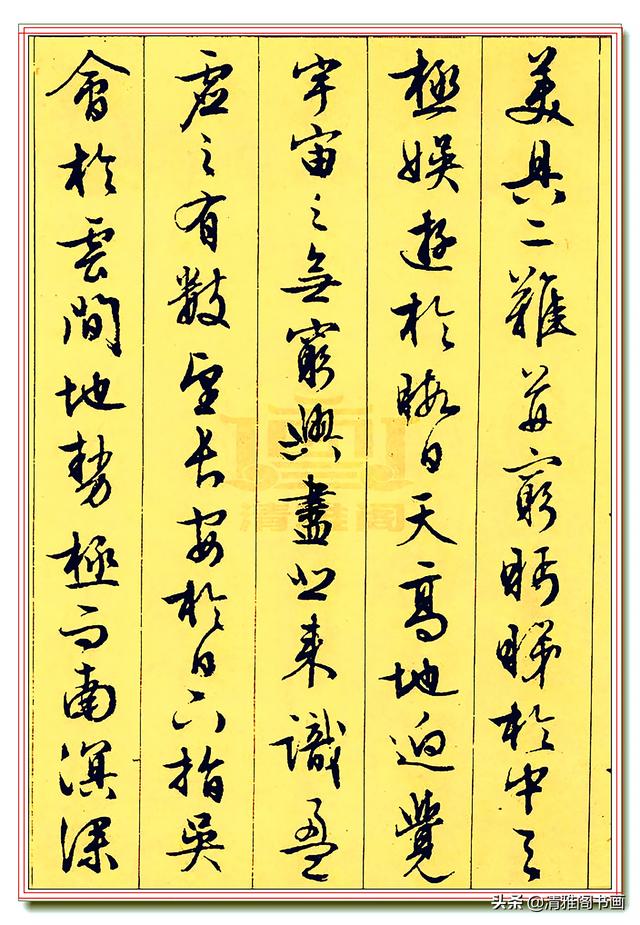 美具二難并窮眄睇於中天
極娛遊於暇日天高地迥覺
宇宙之無窮興盡悲來識盈
虛之有數望長安於日下指吳
會於雲間地勢極而南溟深
清雅阁
头条 @清雅阁书画